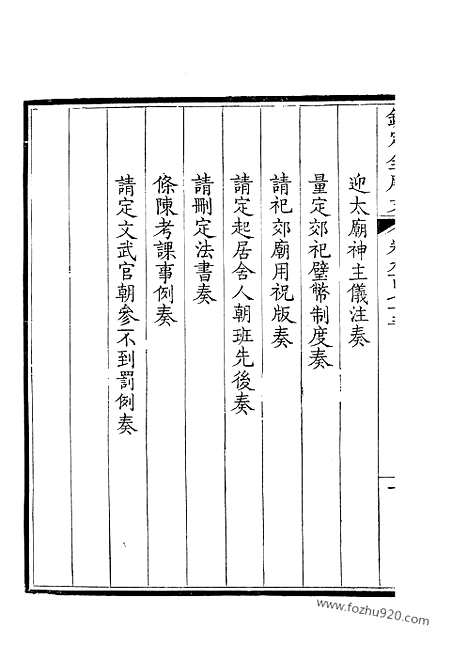 迎太廟神主儀注奏
量定郊祀璧幣制度奏
請祀郊廟用祝版奏
請定起居舍人朝班先後奏
請刪定法書奏
條陳考課事例奏
請定文武官朝參不到罰例奏
www.fozhu920.com